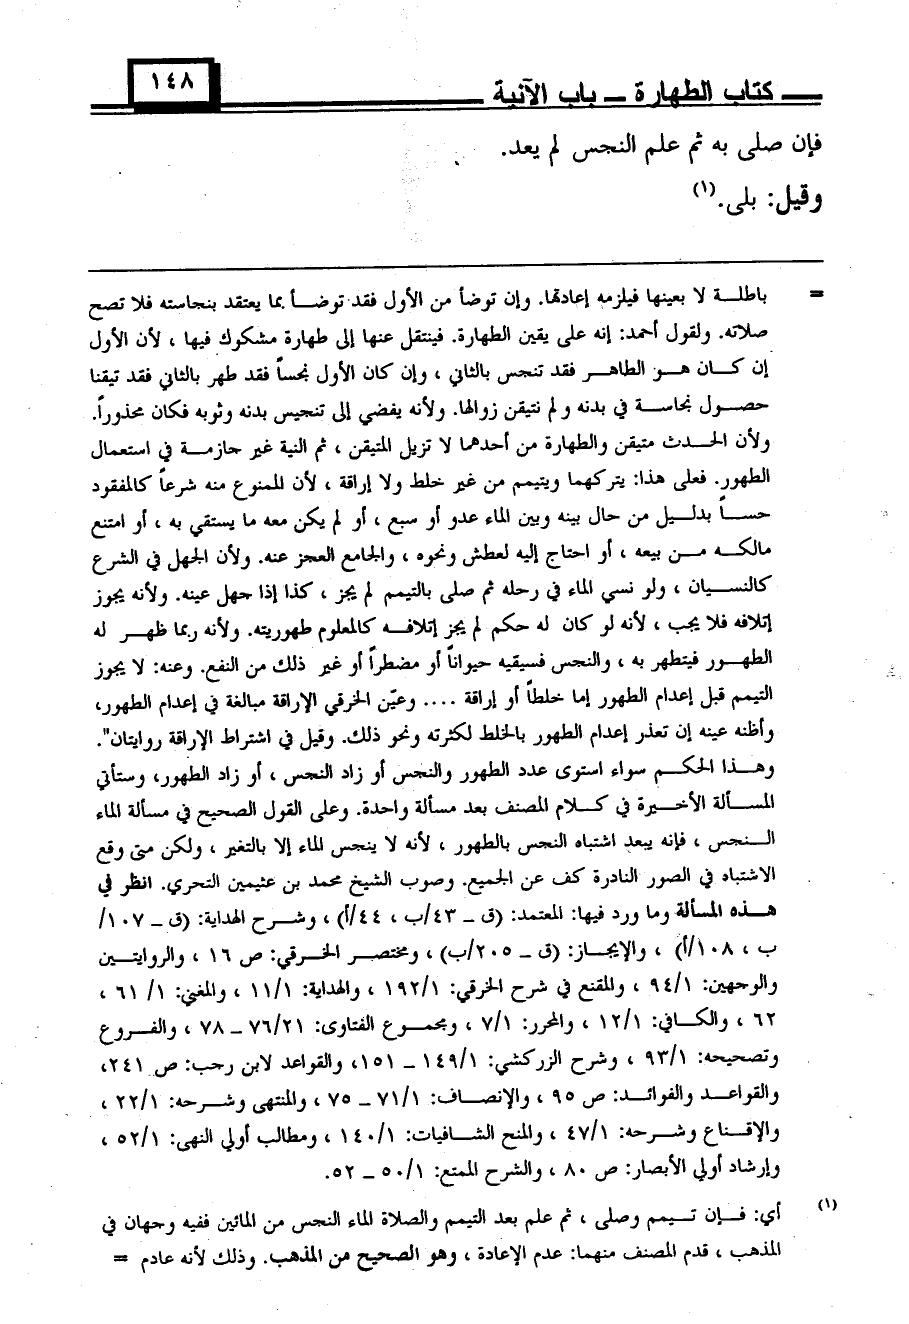 كتاب الطهارة – باب الآنية
١٤٨
فإن صلى به ثم علم النجس لم يعد.
وقيل: بلى.(١)
= باطلة لا بعينها فيلزمه إعادتها. وإن توضأ من الأول فقد توضأ بما يعتقد بنجاسته فلا تصح
صلاته. ولقول أحمد: إنه على يقين الطهارة. فينتقل عنها إلى طهارة مشكوك فيها ، لأن الأول
إن كان هو الطاهر فقد تنجس بالثاني ، وإن كان الأول نجساً فقد طهر بالثاني فقد تيقنا
حصول نجاسة في بدنه ولم نتيقن زوالها. ولأنه يفضي إلى تنجيس بدنه وثوبه فكان محذوراً.
ولأن الحدث متيقن والطهارة من أحدهما لا تزيل المتيقن ، ثم النية غير جازمة في استعمال
الطهور. فعلى هذا: يتركهما ويتيمم من غير خلط ولا إراقة ، لأن الممنوع منه شرعاً كالمفقود
حساً بدليل من حال بينه وبين الماء عدو أو سبع ، أو لم يكن معه ما يستقي به ، أو امتنع
مالكه من بيعه ، أو احتاج إليه لعطش ونحوه ، والجامع العجز عنه. ولأن الجهل في الشرع
كالنسيان ، ولو نسي الماء في رحله ثم صلى بالتيمم لم يجز ، كذا إذا جهل عينه. ولأنه يجوز
إتلافه فلا يجب ، لأنه لو كان له حكم لم يجز إتلافه كالمعلوم طهوريته. ولأنه ربما ظهر له
الطهور فيتطهر به ، والنجس فسيقيه حيواناً أو مضطراً أو غير ذلك من النفع. وعنه: لا يجوز
التيمم قبل إعدام الطهور إما خلطاً أو إراقة .... وعيّن الخرقي الإراقة مبالغة في إعدام الطهور،
وأظنه عينه إن تعذر إعدام الطهور بالخلط لكثرته ونحو ذلك. وقيل في اشتراط الإراقة روايتان".
وهذا الحكم سواء استوى عدد الطهور والنجس أو زاد النجس ، أو زاد الطهور، وستأتي
المسألة الأخيرة في كلام المصنف بعد مسألة واحدة. وعلى القول الصحيح في مسألة الماء
النجس ، فإنه يبعد اشتباه النجس بالطهور ، لأنه لا ينجس الماء إلا بالتغير ، ولكن متى وقع
الاشتباه في الصور النادرة كف عن الجميع. وصوب الشيخ محمد بن عثيمين التحري. انظر في
هذه المسألة وما ورد فيها: المعتمد: (ق – ٤٣/ب ، ٤٤/أ) ، وشرح الهداية: (ق – ١٠٧/
ب ، ١٠٨/أ) ، والإيجاز: (ق – ٢٠٥/ب) ، ومختصر الخرقي: ص ١٦ ، والروايتين
والوجهين: ٩٤/١ ، والمقنع في شرح الخرقي: ١٩٢/١ ، والهداية: ١١/١ ، والمغني: ١/ ٦١ ،
٦٢ ، والكافي: ١٢/١ ، والمحرر: ٧/١ ، ومجموع الفتاوى: ٧٦/٢١ – ٧٨ ، والفروع
وتصحيحه: ٩٣/١ ، وشرح الزركشي: ١٤٩/١ – ١٥١، والقواعد لابن رجب: ص ٢٤١،
والقواعد والفوائد: ص ٩٥ ، والإنصاف: ٧١/١ – ٧٥ ، والمنتهى وشرحه: ٢٢/١ ،
والإقناع وشرحه: ٤٧/١ ، والمنح الشافيات: ١٤٠/١ ، ومطالب أولي النهى: ٥٢/١ ،
وإرشاد أولي الأبصار: ص ٨٠ ، والشرح الممتع: ٥٠/١ – ٥٢.
(١) أي: فإن تيمم وصلى ، ثم علم بعد التيمم والصلاة الماء النجس من المائين ففيه وجهان في
المذهب ، قدم المصنف منهما: عدم الإعادة ، وهو الصحيح من المذهب. وذلك لأنه عادم =